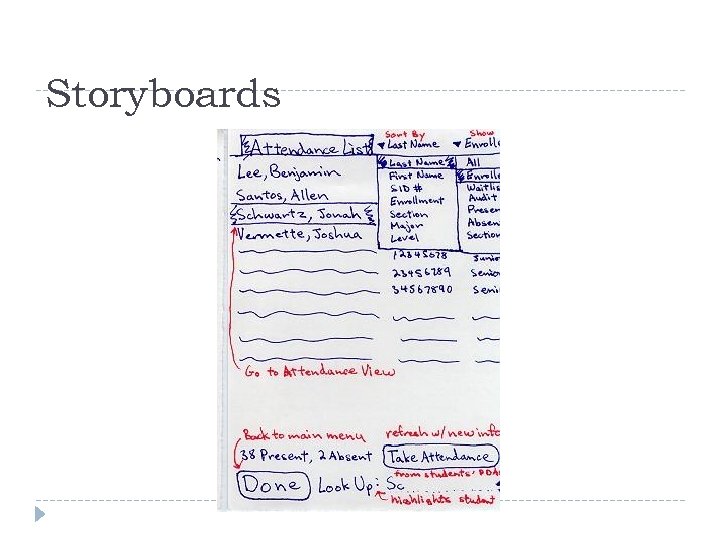 Storyboards
Sort By
Show
Attendance List
Last Name
Enrolle
Lee, Benjamin
Last Name
All
First Name
Enrolle
Santos, Allen
SID #
Waitlis
Enrollment
Audit
Schwartz, Jonah
Section
Presen
Major
Absen
Vermette, Joshua
Level
Section
12345678
Junio
23456789
Senio
34567890
Seni
Go to Attendance View
Back to main menu
refresh w/ new info
38 Present, 2 Absent
Take Attendance
from students' PDA
Done
Look Up: Sc
highlights student